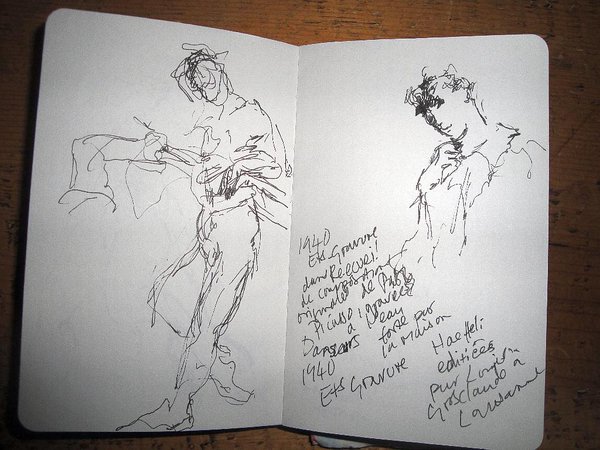 1940
Ets Gravure
dans Recueil
de composition
originale de Pablo
Picasso, gravées
Danseurs à l'eau
forte par
la Maison
1940
Ets Gravure
Haefeli
editées
pur Louis
Grosclaude à
Lausanne